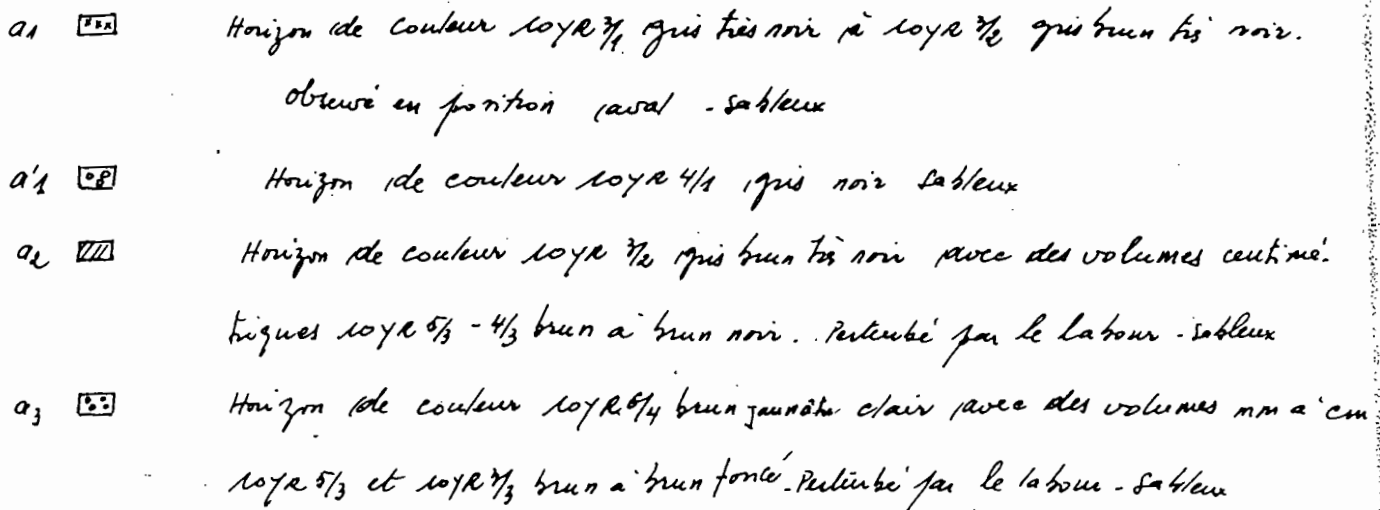 a1 Horizon de couleur 10YR 3/1 gris très noir à 10YR 3/2 gris brun très noir.
Observé en position aval - sableux
a'1 Horizon de couleur 10YR 4/1 gris noir sableux
a2 Horizon de couleur 10YR 3/2 gris brun très noir avec des volumes centimé-
triques 10YR 5/3 - 4/3 brun à brun noir. Perturbé par le labour - sableux
a3 Horizon de couleur 10YR 6/4 brun jaunâtre clair avec des volumes mm à cm
10YR 5/3 et 10YR 3/3 brun à brun foncé - Perturbé par le labour - sableux